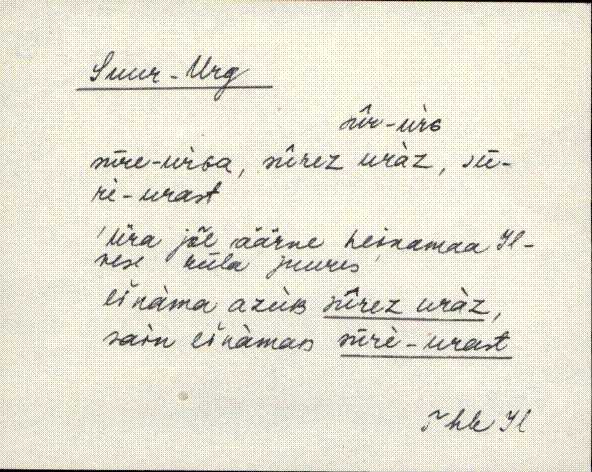 Suur-Urg
sûr-ùrɢ
sūre-ùrɢa, sûrez uràz, sū-
rè-urast
'Üra jõe äärne heinamaa Il-
vese küla juures'
ēi̯nàma azùʙ sûrez uràz,
sain ēi̯nàmaʙ sūrè-urast